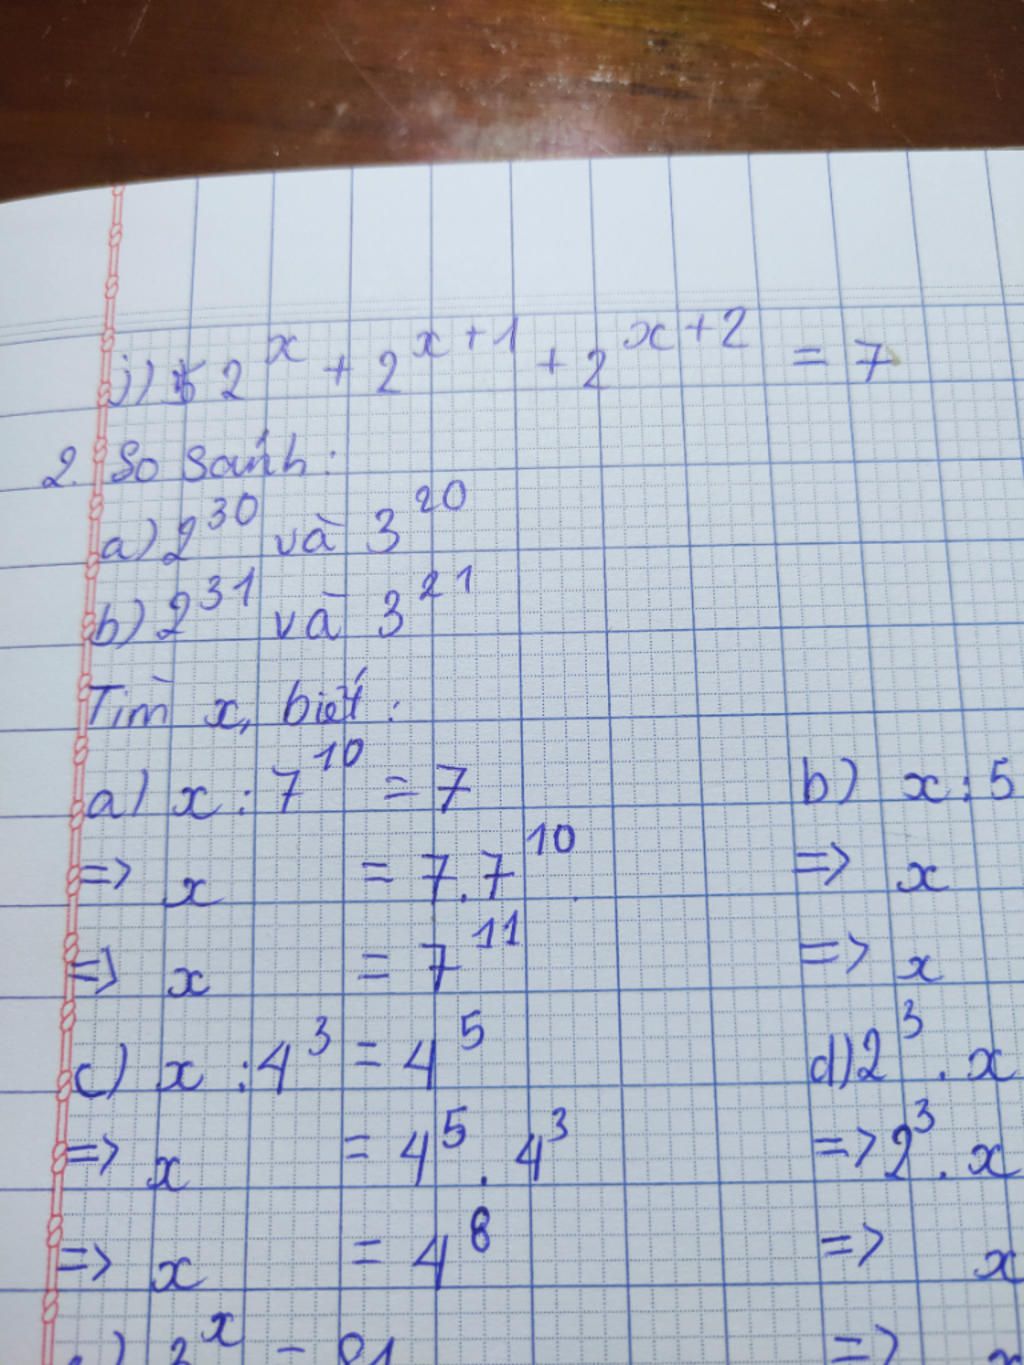 j) 2^x + 2^{x+1} + 2^{x+2} = 7
2. So sánh:
a) 2^{30} và 3^{20}
b) 2^{31} và 3^{21}
Tìm x, biết:
a) x : 7^{10} = 7
b) x : 5
=> x = 7.7^{10}
=> x
=> x = 7^{11}
=> x
c) x : 4^3 = 4^5
d) 2^3 . x
=> x = 4^5 . 4^3
=> 2^3 . x
=> x = 4^8
=> x
=> x